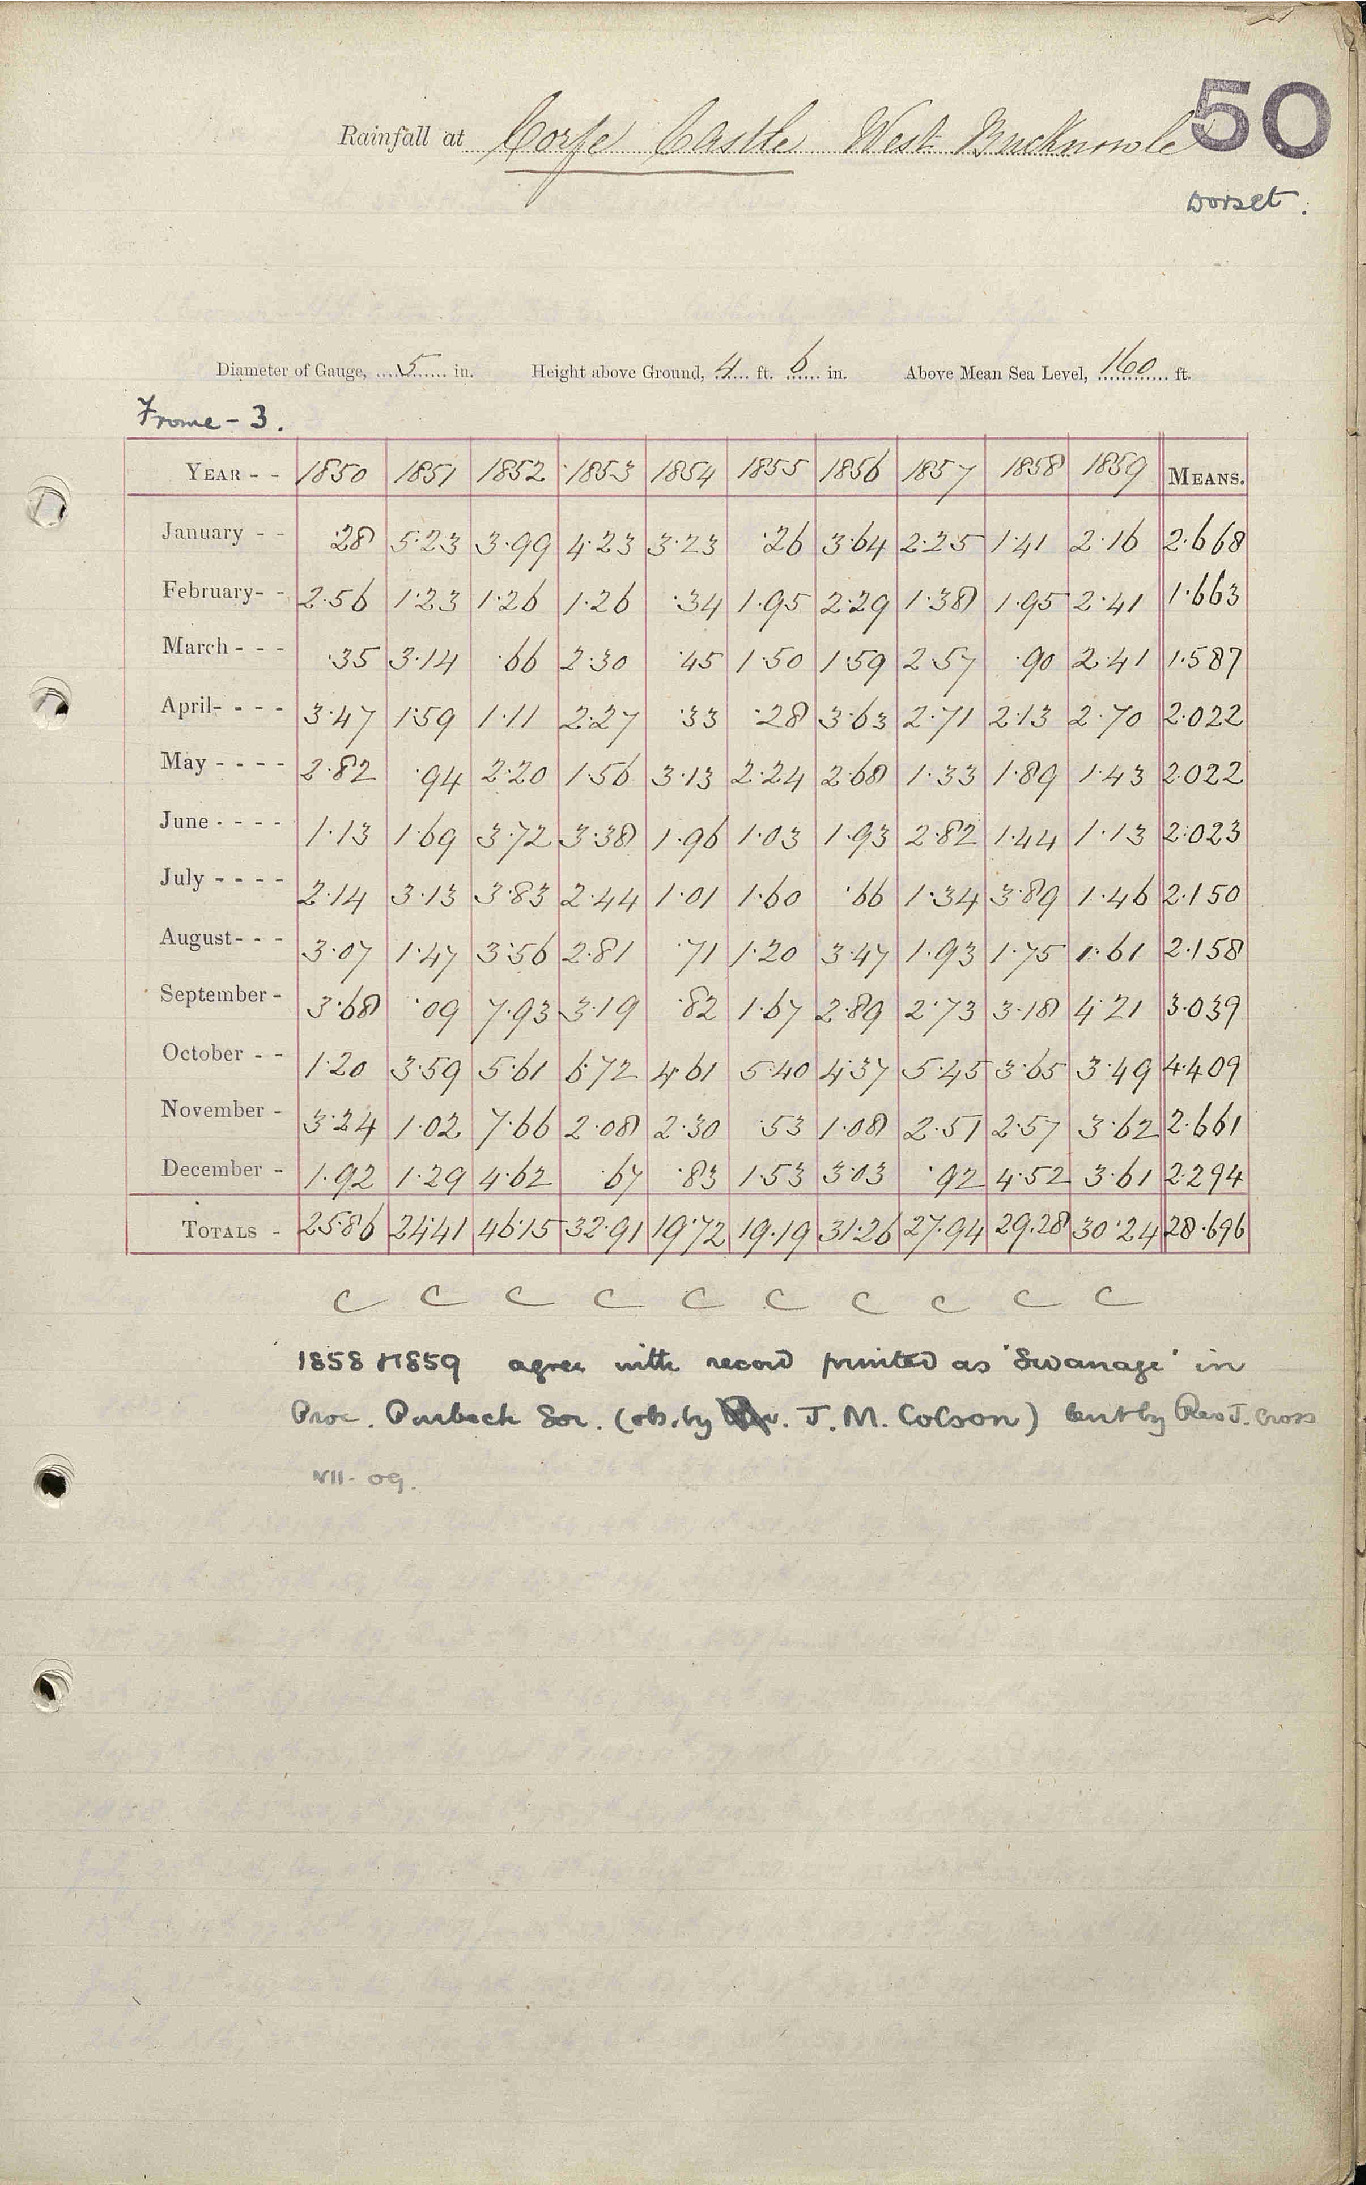 50
Rainfall at Corfe Castle West Bucknowle
Dorset.
Diameter of Gauge, 5 in. Height above Ground, 4 ft. 6 in. Above Mean Sea Level, 160 ft.
Frome - 3.
YEAR - - 1850 1851 1852 1853 1854 1855 1856 1857 1858 1859 MEANS.
January - - ·28 5·23 3·99 4·23 3·23 ·26 3·64 2·25 1·41 2·16 2·668
February- - 2·56 1·23 1·26 1·26 ·34 1·95 2·29 1·38 1·95 2·41 1·663
March - - - ·35 3·14 ·66 2·30 ·45 1·50 1·59 2·57 ·90 2·41 1·587
April- - - - 3·47 1·59 1·11 2·27 ·33 ·28 3·63 2·71 2·13 2·70 2·022
May - - - - 2·82 ·94 2·20 1·56 3·13 2·24 2·68 1·33 1·89 1·43 2·022
June - - - - 1·13 1·69 3·72 3·38 1·96 1·03 1·93 2·82 1·44 1·13 2·023
July - - - - 2·14 3·13 3·83 2·44 1·01 1·60 ·66 1·34 3·89 1·46 2·150
August- - - 3·07 1·47 3·56 2·81 ·71 1·20 3·47 1·93 1·75 1·61 2·158
September - 3·68 ·09 7·93 3·19 ·82 1·67 2·89 2·73 3·18 4·21 3·039
October - - 1·20 3·59 5·61 6·72 4·61 5·40 4·37 5·45 3·65 3·49 4·409
November - 3·24 1·02 7·66 2·08 2·30 ·53 1·08 2·51 2·57 3·62 2·661
December - 1·92 1·29 4·62 ·67 ·83 1·53 3·03 ·92 4·52 3·61 2·294
TOTALS - 25·86 24·41 46·15 32·91 19·72 19·19 31·26 27·94 29·28 30·24 28·696
C C C C C C C C C C
1858 & 1859 agree with record printed as 'Swanage' in
Proc. Purbeck Soc. (obs. by J. M. Colson) lent by Rev J. Cross
VII - 09.